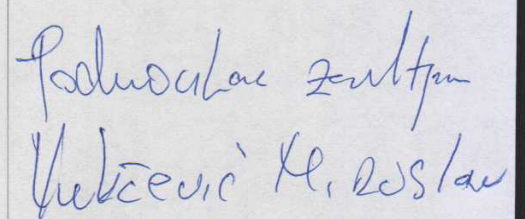 Podnosilac zahtjeva
Vukčević Miroslav